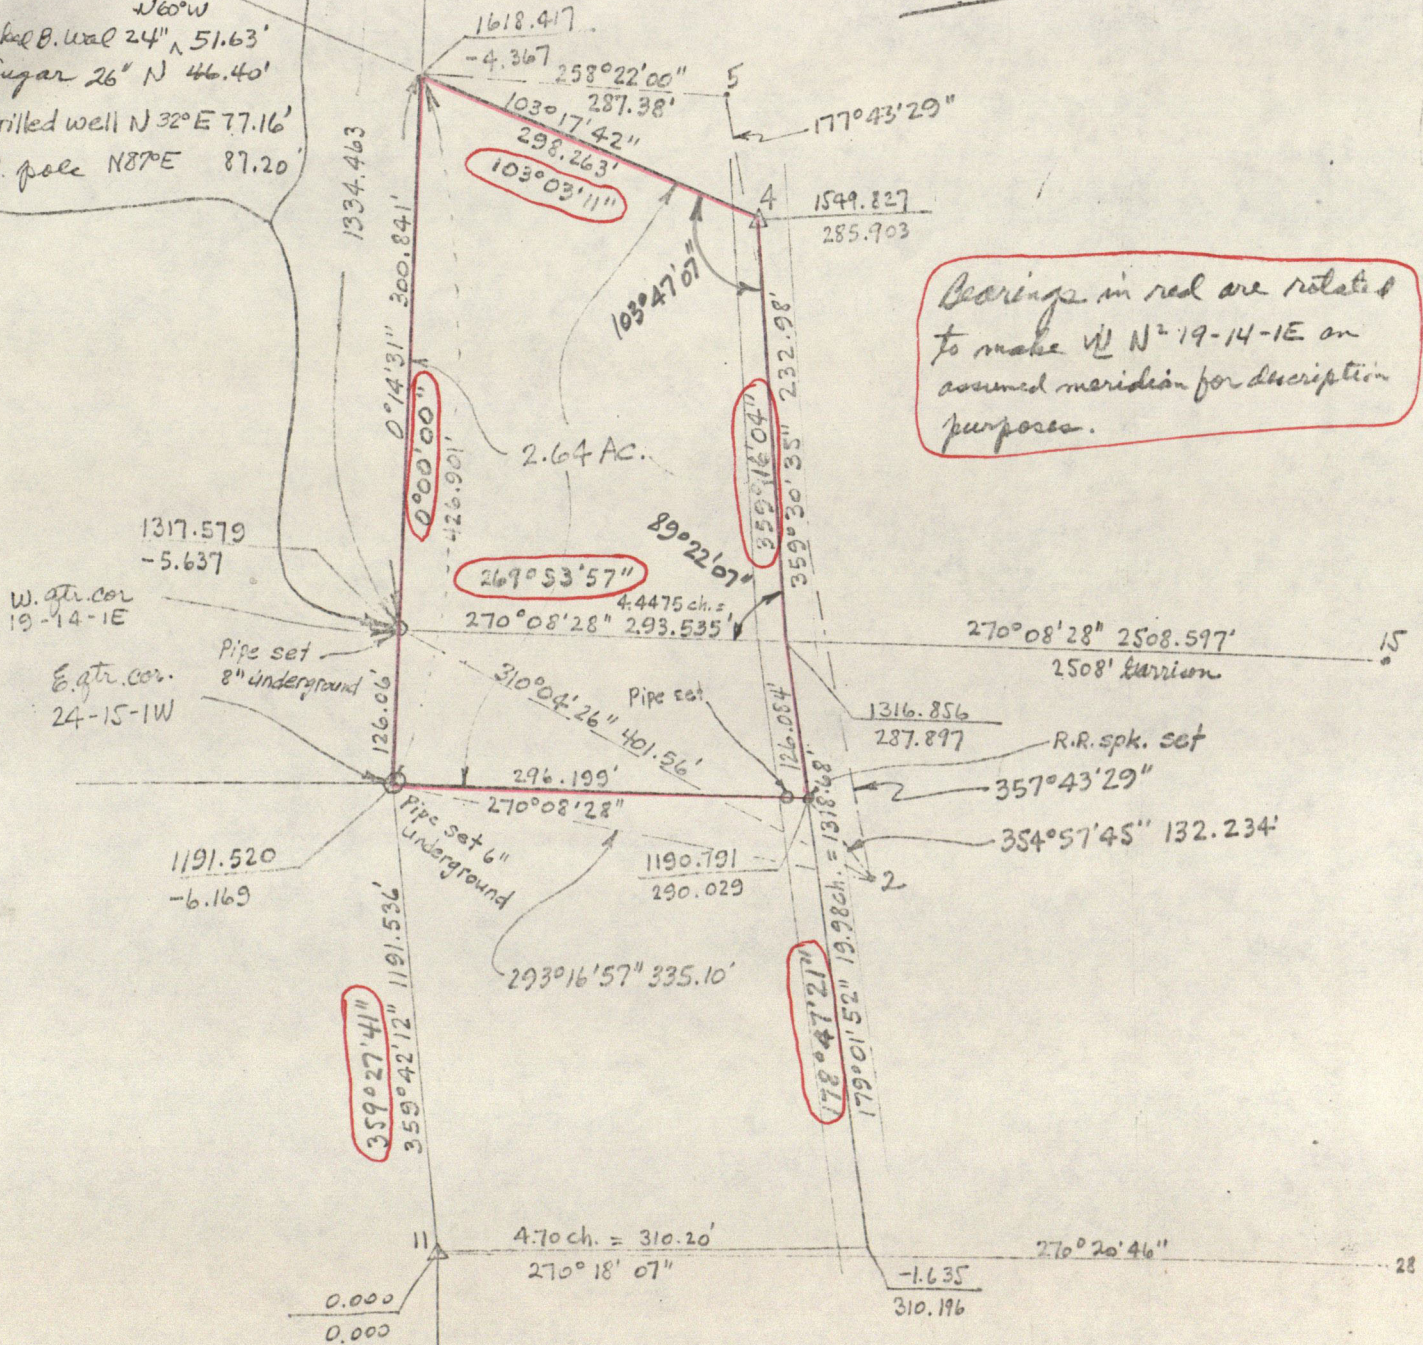 N60°W
B. Wal 24" ^ 51.63'
ugar 26" N 46.40'
rilled well N 32°E 77.16'
. pole N87°E 87.20'
1618.417
-4.367
258°22'00"
287.38'
5
177°43'29"
103°17'42"
298.263'
103°03'11"
4
1549.827
285.903
103°47'07"
1334.463
300.841'
0°14'31"
0°00'00"
426.901'
2.64 AC.
232.98'
359°16'04"
359°30'35"
Bearings in red are rotated
to make WL N² 19-14-1E an
assumed meridian for description
purposes.
1317.579
-5.637
W. qtr. cor
19-14-1E
89°22'07"
269°53'57"
4.4475 ch. =
270°08'28" 293.535'
270°08'28" 2508.597'
2508' Garrison
15
Pipe set
8" underground
E. qtr. cor.
24-15-1W
126.06'
310°04'26" 401.56'
Pipe set
126.084'
1316.856
287.897
R.R. spk. set
357°43'29"
354°57'45" 132.234'
2
296.199'
270°08'28"
Pipe set 6"
underground
1191.520
-6.169
1190.791
290.029
293°16'57" 335.10'
359°27'41"
359°42'12" 1191.536'
178°47'21"
179°01'52" 19.98ch. = 1318.68'
11
4.70 ch. = 310.20'
270°18'07"
270°20'46"
28
-1.635
310.196
0.000
0.000